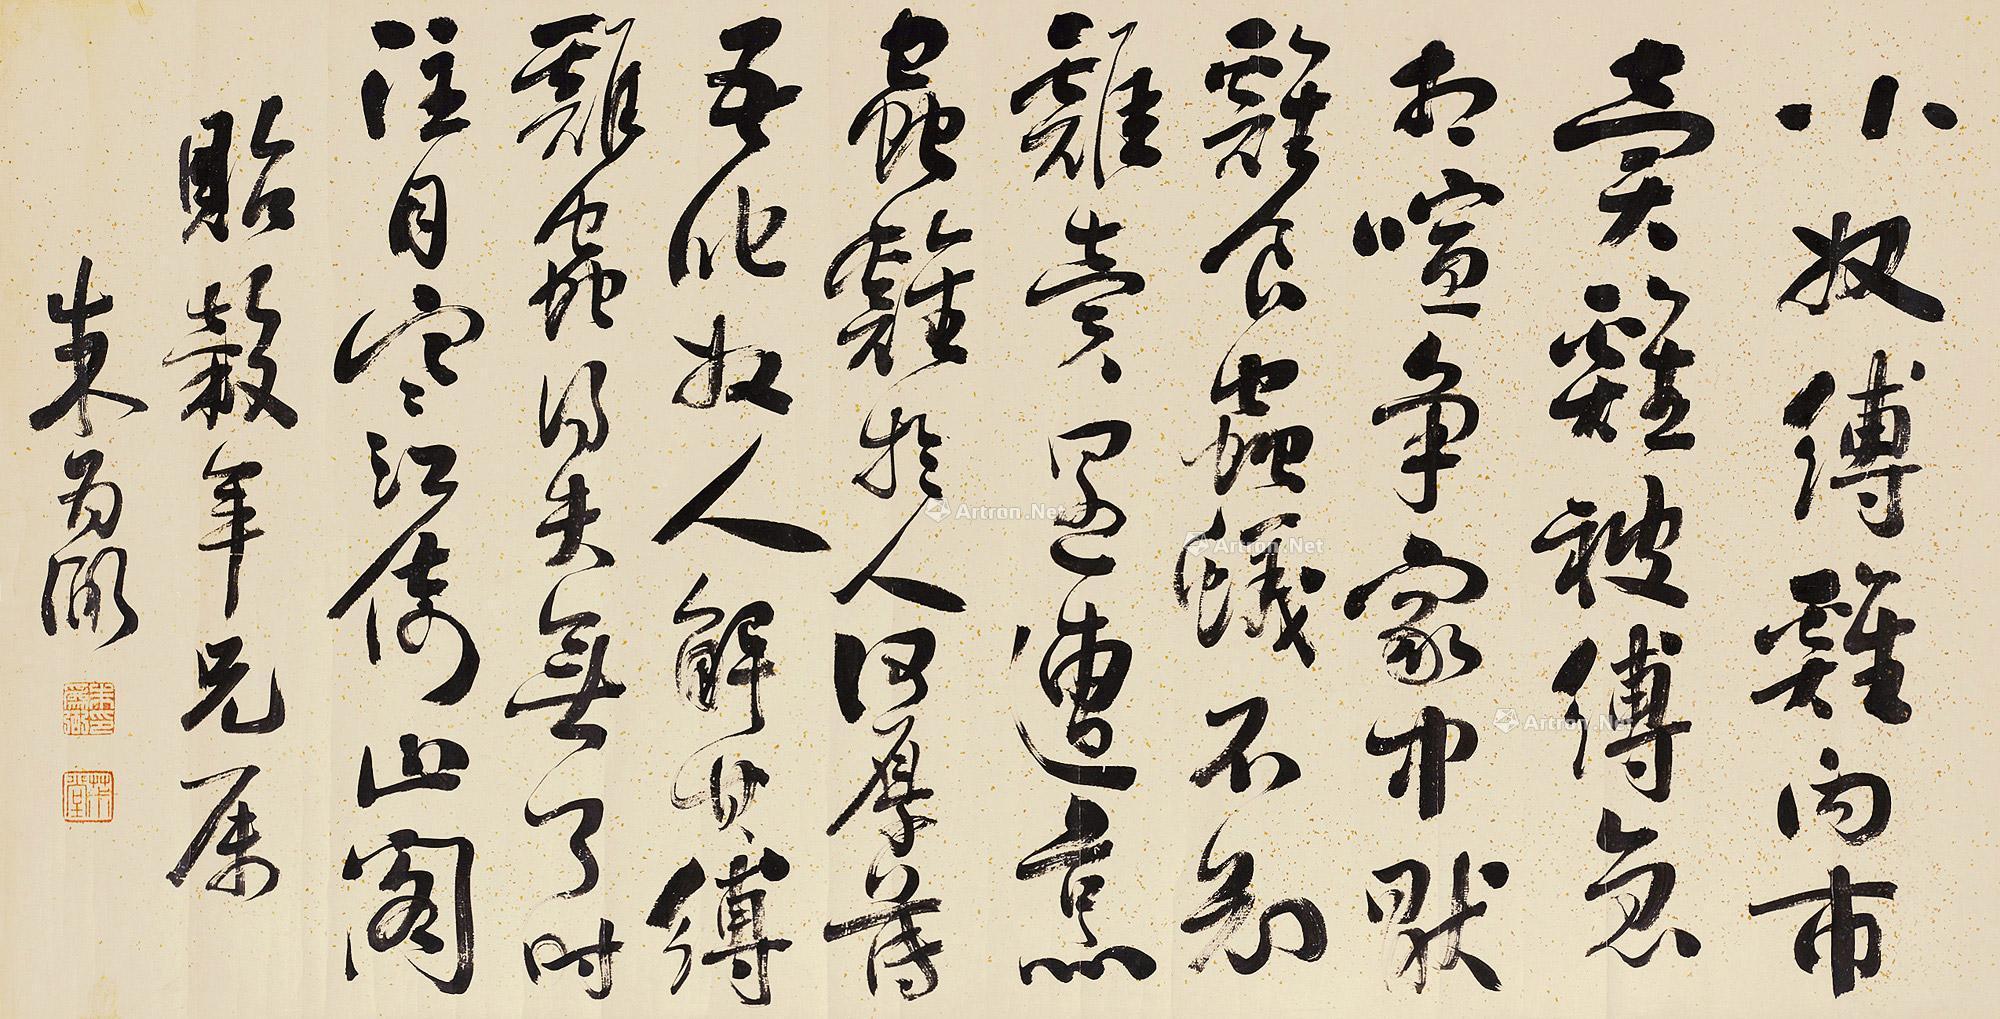 小奴縛雞向市
賣雞被縛急
相喧争家中厭
雞食蟲蟻不知
雞賣還遭烹
蟲雞於人何厚薄
吾叱奴人解其縛
雞蟲得失無了时
注目寒江倚山閣
貽穀年兄属
朱为弼
朱印為弼
茮堂
Artron.Net
Artron.Net
Artron.Net